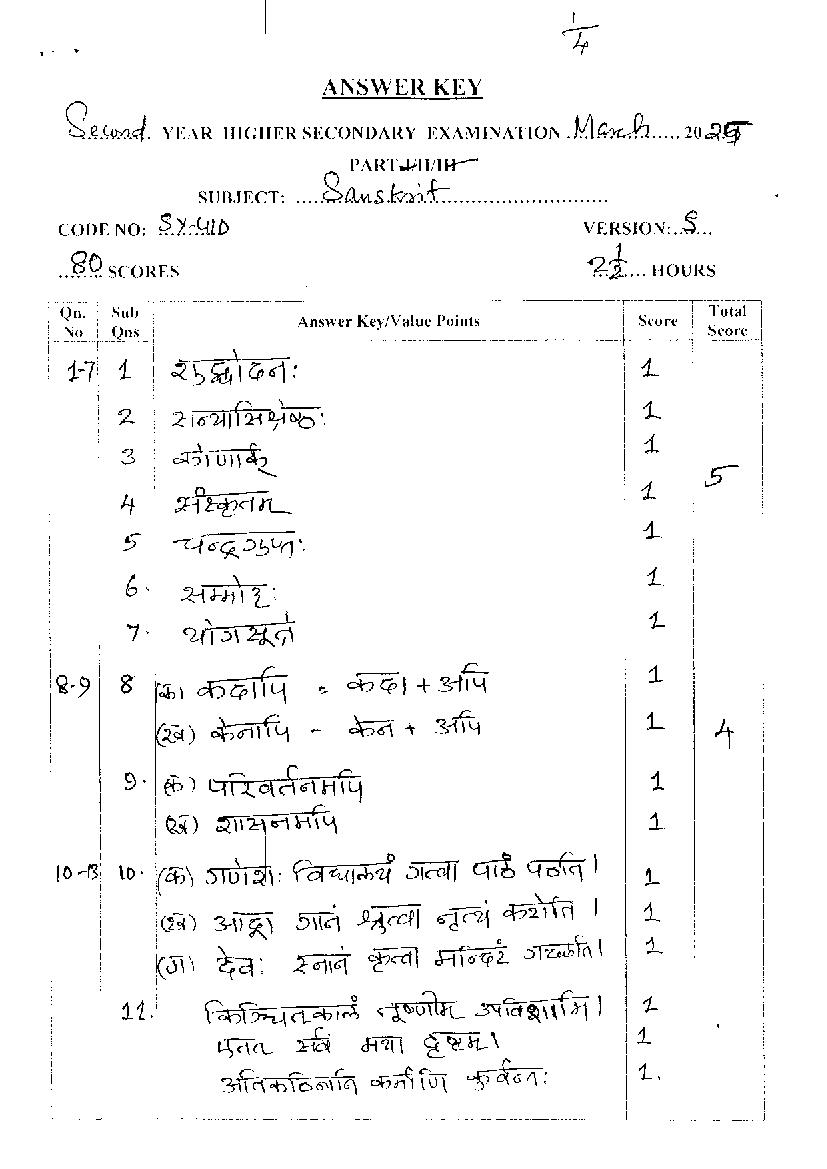 1/4
ANSWER KEY
Second YEAR HIGHER SECONDARY EXAMINATION March 2025
PART I/II/III
SUBJECT: Sanskrit
CODE NO: SY-41D VERSION: S
80 SCORES 2 1/2 HOURS
Qn. No Sub Qns Answer Key/Value Points Score Total Score
1-7 1 शुद्धोदनः 1
2 सन्यासिश्रेष्ठः 1
3 कोणार्क् 1
4 संस्कृतम् 1 5
5 चन्द्रगुप्तः 1
6. सम्मोहः 1
7. योगसूत्रे 1
8-9 8 (क) कदापि = कदा + अपि 1
(ख) केनापि - केन + अपि 1 4
9. (क) परिवर्तनमपि 1
(ख) शासनमपि 1
10-13 10. (क) गणेशः विद्यालयं गत्वा पाठं पठति। 1
(ख) गानं श्रुत्वा नृत्यं करोति । 1
(ग) देवः स्नानं कृत्वा मन्दिरं गच्छति। 1
11. किञ्चित्कालं तूष्णीम् उपविशामि। 1
एतत् सर्वं मया दृष्टम्। 1
अतिकठिनानि कर्माणि कुर्वन्तः 1.